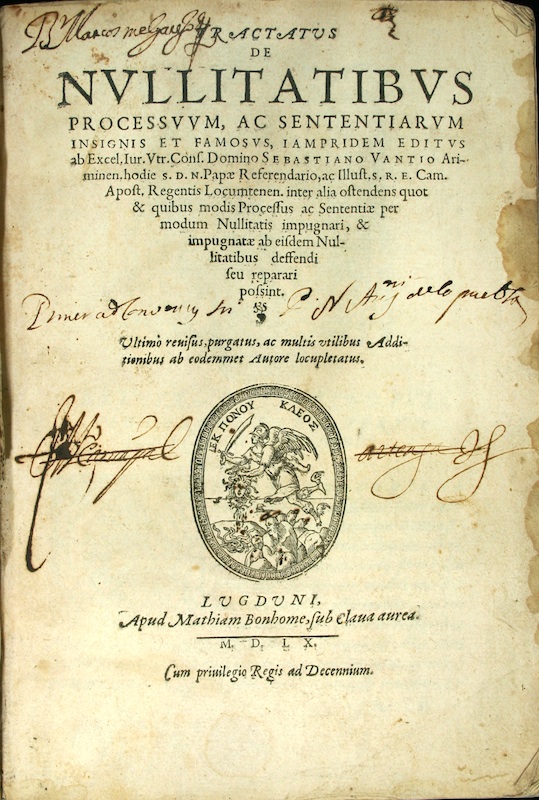 TRACTATVS
DE
NVLLITATIBVS
PROCESSVVM, AC SENTENTIARVM
INSIGNIS ET FAMOSVS, IAMPRIDEM EDITVS
ab Excel. Iur. Vtr. Cons. Domino SEBASTIANO VANTIO Ari-
minen. hodie S. D. N. Papæ Referendario, ac Illust. S. R. E. Cam.
Apost. Regentis Locumtenen. inter alia ostendens quot
& quibus modis Processus ac Sententiæ per
modum Nullitatis impugnari, &
impugnatæ ab eisdem Nul-
litatibus deffendi
seu reparari
possint.
Vltimò reuisus, purgatus, ac multis vtilibus Addi-
tionibus ab eodemmet Autore locupletatus.
ἘΚ ΠΟΝΟΥ ΚΛΕΟΣ
LVGDVNI,
Apud Mathiam Bonhome, sub Claua aurea.
M. D. LX.
Cum priuilegio Regis ad Decennium.